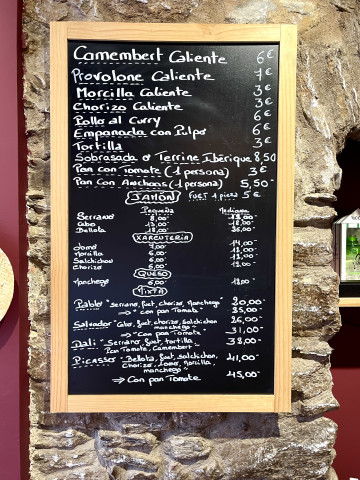 Camembert Caliente 6€
Provolone Caliente 7€
Morcilla Caliente 3€
Chorizo Caliente 3€
Pollo al Curry 6€
Empanada con Pulpo 6€
Tortilla 3€
Sobrasada o Terrine Ibérique 8,50
Pan con Tomate (1 persona) 3€
Pan Con Anchoas (1 persona) 5,50
JAMÓN FUET 1 pieza 5€
Pequeña Mediana
Serrano 8,00
Cebo 13,00 18,00
Bellota 18,00
XARCUTERIA
Lomo 7,00 14,00
Morcilla 6,00 13,00
Salchichon 6,00 13,00
Chorizo 6,00
QUESO
Manchego 6,00 13,00
MIXTA
Pablo - Serrano, fuet, chorizo, Manchego 20,00
→ " con pan Tomate 25,00
Salvador - Cebo, fuet, chorizo, salchichon 26,00
manchego
→ " con pan Tomate 31,00
Dali - Serrano, fuet, tortilla 38,00
Pan Tomate, Camembert
Picasso - Bellota, fuet, salchichon, 41,00
Chorizo, lomo, Morcilla,
manchego
→ Con pan Tomate 45,00